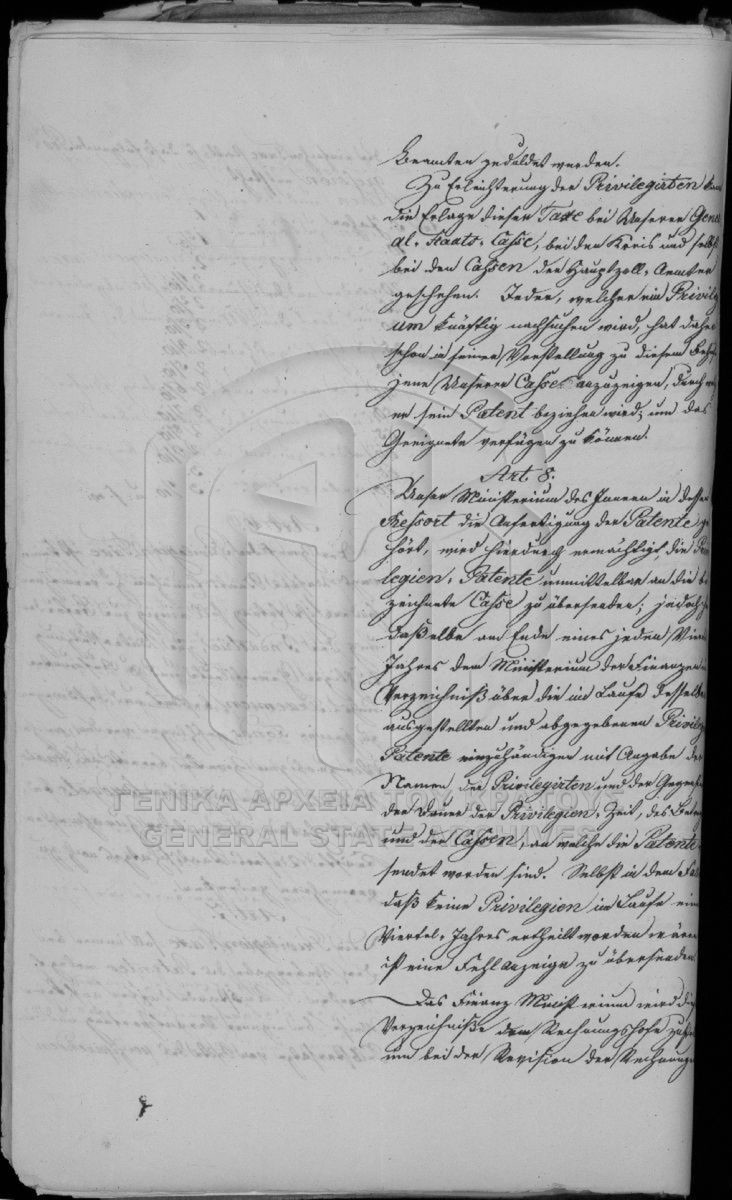 Beamten geduldet werden.
Zu Erleichterung der Privilegirten kann
die Erlage dieser Taxe bei Unserer Gener
al-Staats-Casse, bei den Kreis und selbst
bei den Cassen der Hauptzoll-Aemter
geschehen. Jeder, welcher ein Privile
um künftig nachsuchen wird, hat daher
schon in seiner Vorstellung zu diesem Behufe
jene Unserer Casse anzuzeigen, durch
er sein Patent beziehen wird, um das
Geeignete verfügen zu können.
Art. 8.
Unser Ministerium des Innern in dessen
Ressort die Anfertigung der Patente ge
hört, wird hierdurch ermächtigt die Privi
legien-Patente unmittelbar an die be
zeichnete Casse zu übersenden; jedoch
dasselbe am Ende eines jeden Viertel
Jahres dem Ministerium der Finanzen
Verzeichniß über die im Laufe desselben
ausgestellten und abgegebenen Privileg
Patente einzuhändigen mit Angabe der
Namen der Privilegirten und der Gegenst
der Dauer der Privilegien-Zeit, des Betrag
und der Cassen, an welche die Patente
sendet worden sind. Selbst in dem Fall
daß keine Privilegien im Laufe eines
Viertel-Jahres ertheilt worden wären
ist eine Fehlanzeige zu übersenden
Das Finanz Ministerium wird die
Verzeichniße dem Rechnungshofe
um bei der Revision der Rechnungen
ΓΕΝΙΚΑ ΑΡΧΕΙΑ ΤΟΥ ΚΡΑΤΟΥΣ
GENERAL STATE ARCHIVES